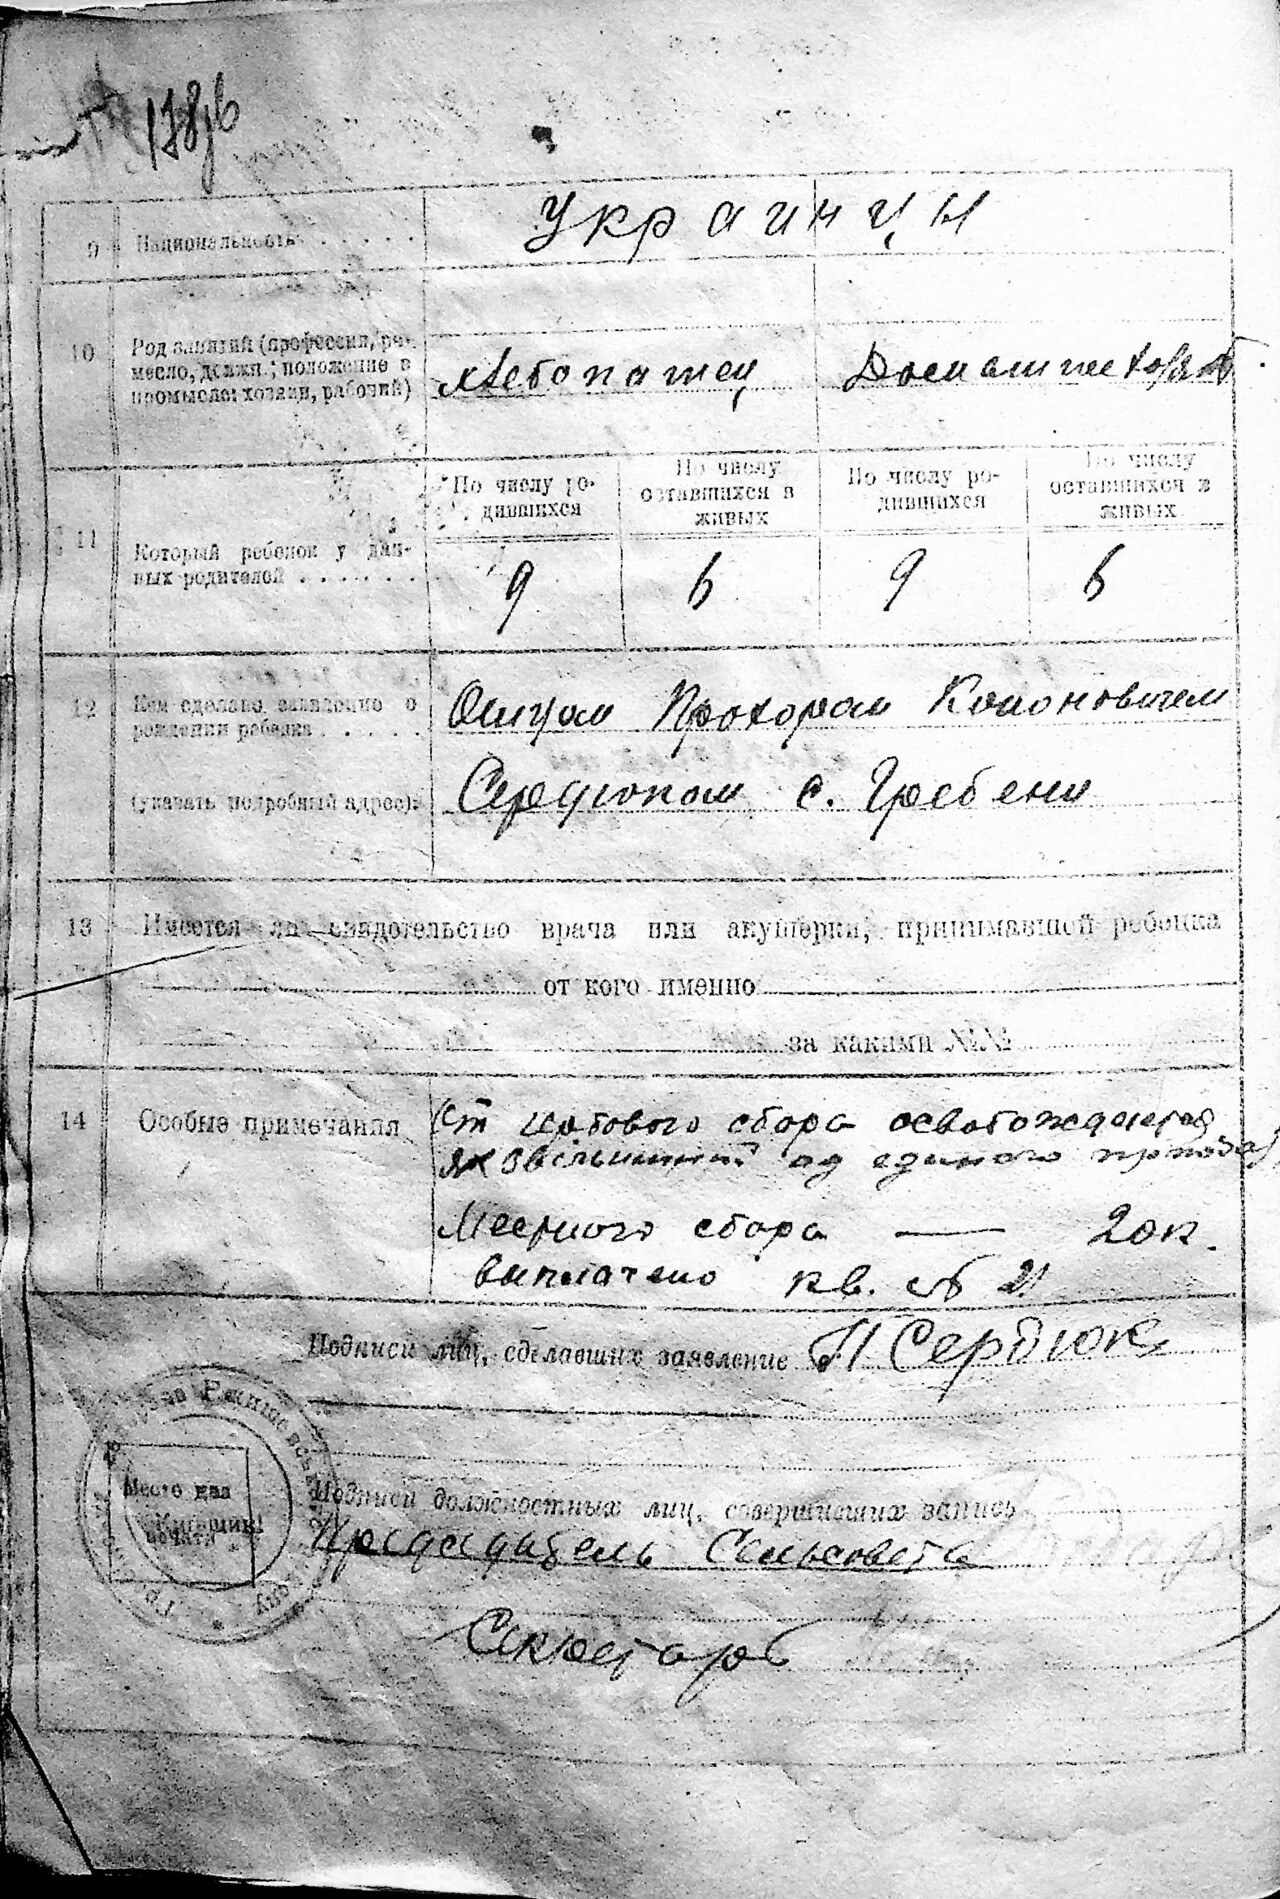 178
9 Национальность . . . . .
Украинцы
10 Род занятий (профессия, ре-
месло, должн.; положение в
промысле: хозяин, рабочий)
Хлебопашец Домашнехоз
11 Который ребенок у дан-
ных родителей . . . . . .
По числу ро-
дившихся
По числу
оставшихся в
живых
По числу ро-
дившихся
По числу
оставшихся в
живых
9 6 9 6
12 Кем сделано заявление о
рождении ребенка . . . . .
(указать подробный адрес).
Отцом Прохором Кононовичем
Сердюком с. Гребени
13 Имеется ли свидетельство врача или акушерки, принимавшей ребенка
от кого именно
за какими №№
14 Особые примечания
От сбора освобождается
як звільнений од единого
Местного сбора — 20 к.
выплачено кв. № 21
Подписи лиц, сделавших заявление П Сердюк
Место для
печати
Подписи должностных лиц, совершивших запись
Председатель Сельсовета
Секретарь